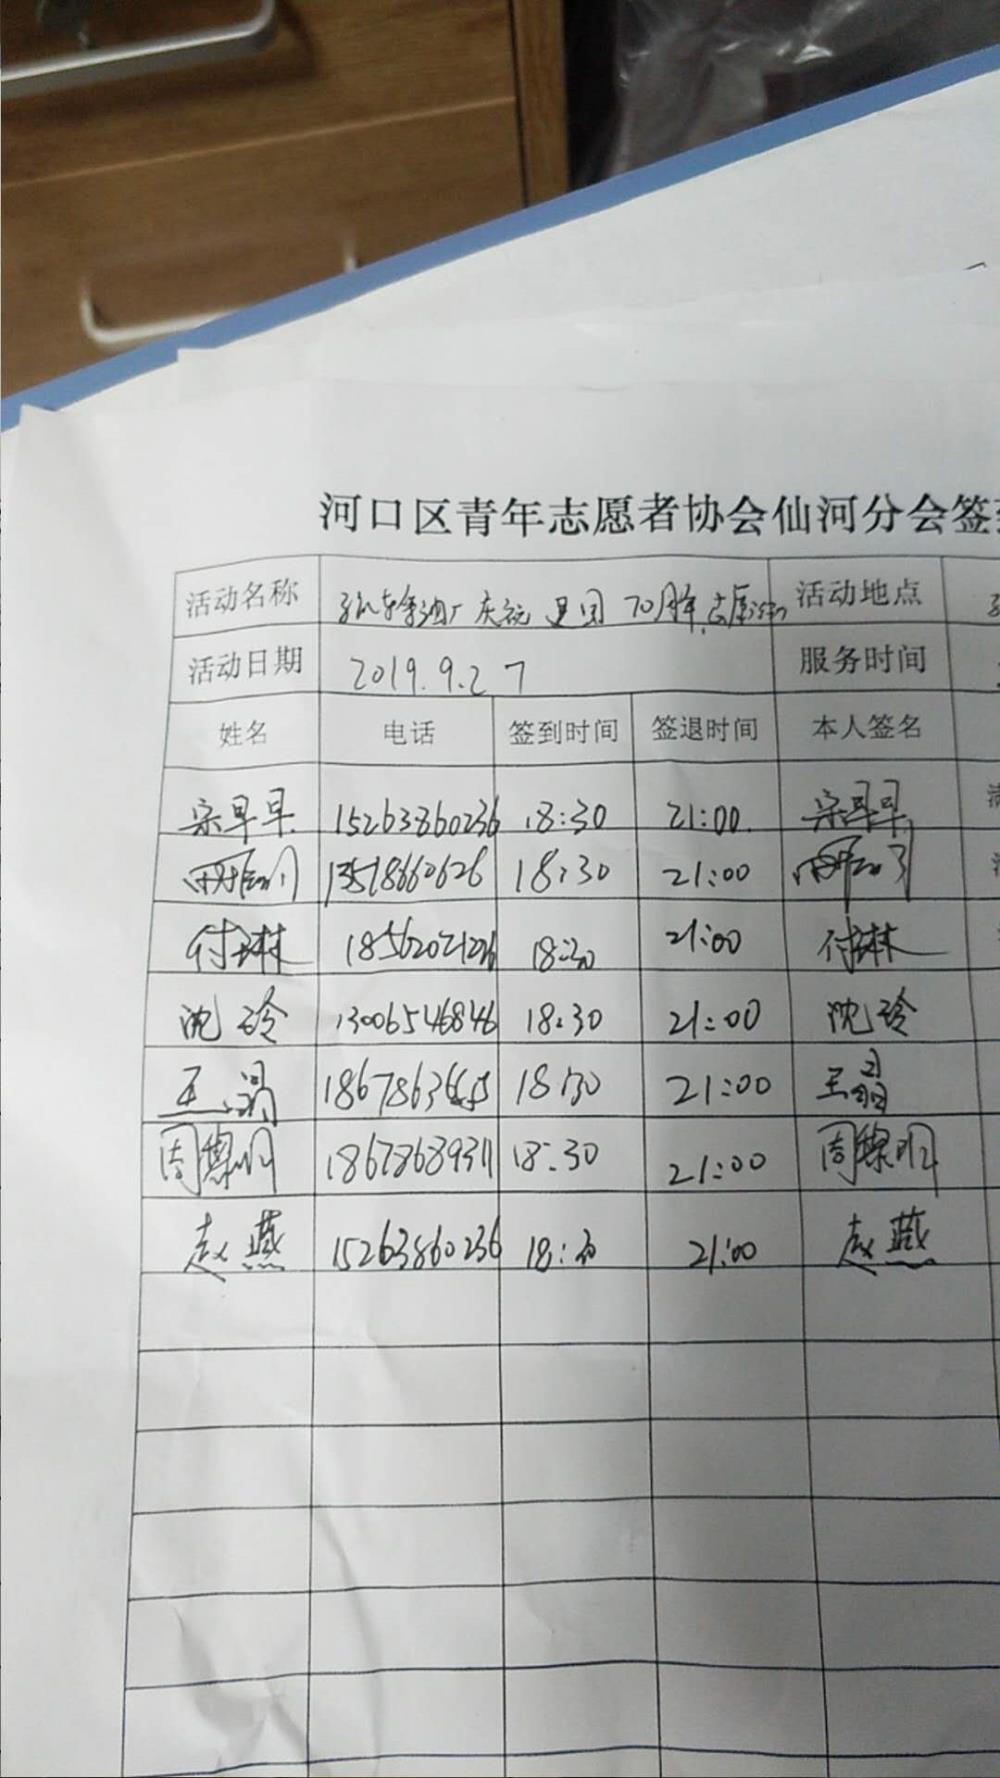 河口区青年志愿者协会仙河分会签
活动名称 庆祝建国70周年志愿活动 活动地点
活动日期 2019.9.27 服务时间
姓名 电话 签到时间 签退时间 本人签名
宗早早 15263860236 18:30 21:00 宗早早
18:30 21:00
付琳 18:30 21:00 付琳
沈玲 13006546846 18:30 21:00 沈玲
王 18:30 21:00 王晶
周 18678689311 18:30 21:00 周
赵燕 15263860236 18:30 21:00 赵燕